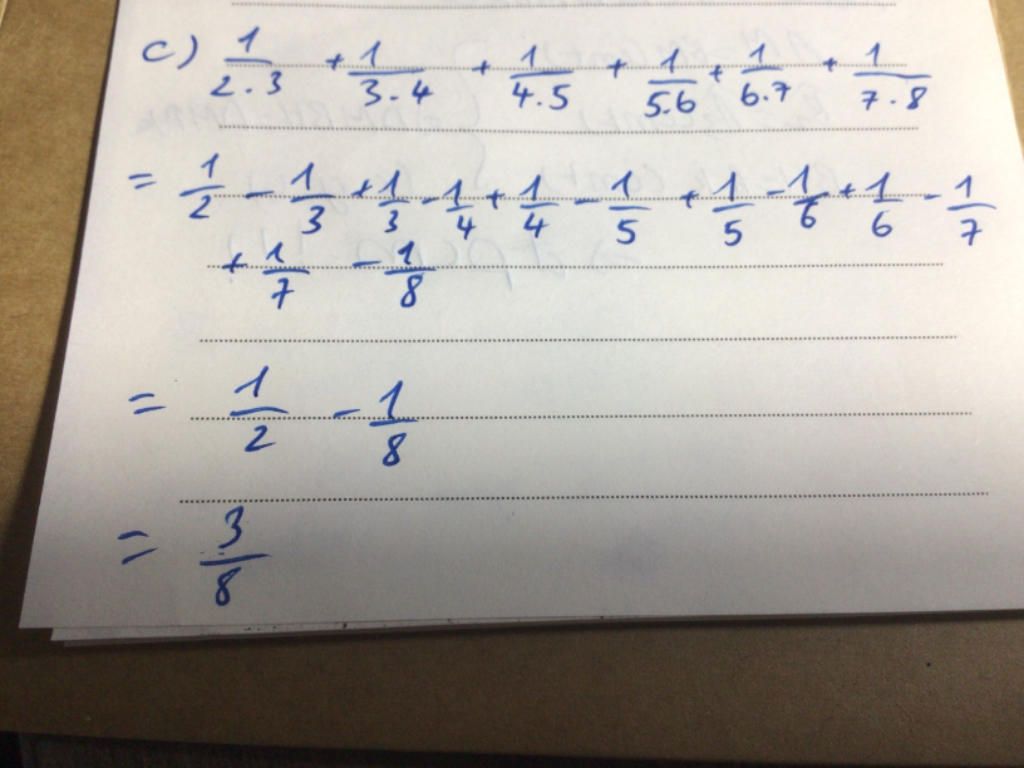 c) 1/2.3 + 1/3.4 + 1/4.5 + 1/5.6 + 1/6.7 + 1/7.8
= 1/2 - 1/3 + 1/3 - 1/4 + 1/4 - 1/5 + 1/5 - 1/6 + 1/6 - 1/7
+ 1/7 - 1/8
= 1/2 - 1/8
= 3/8